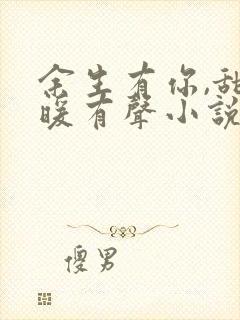 余生有你,甜
暖有聲小說
傻男